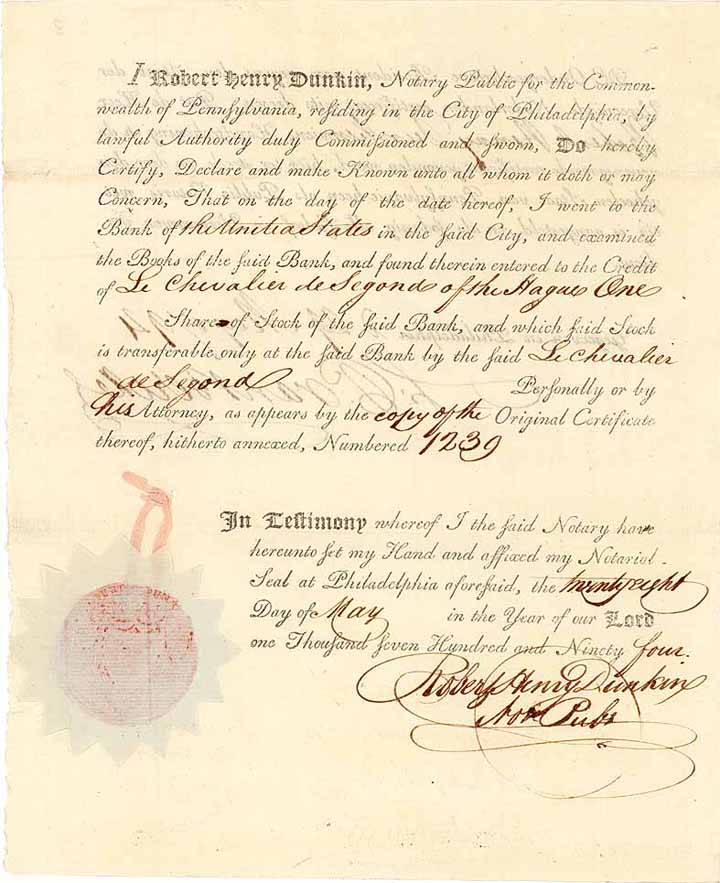 I Robert Henry Dunkin, Notary Public for the Common-
wealth of Pennsylvania, reſiding in the City of Philadelphia, by
lawful Authority duly Commiſsioned and ſworn, Do hereby
Certify, Declare and make Known unto all whom it doth or may
Concern, That on the day of the date hereof, I went to the
Bank of the United States in the ſaid City, and examined
the Books of the ſaid Bank, and found therein entered to the Credit
of Le Chevalier de Segond of the Hague One
Share of Stock of the ſaid Bank, and which ſaid Stock
is transferable only at the ſaid Bank by the ſaid Le Chevalier
de Segond Perſonally or by
his Attorney, as appears by the copy of the Original Certificate
thereof, hitherto annexed, Numbered 1239
In Teſtimony whereof I the ſaid Notary have
hereunto ſet my Hand and affixed my Notarial
Seal at Philadelphia aforeſaid, the twenty eight
Day of May in the Year of our Lord
one Thouſand ſeven Hundred and Ninety four.
Robert Henry Dunkin
Not Pubs